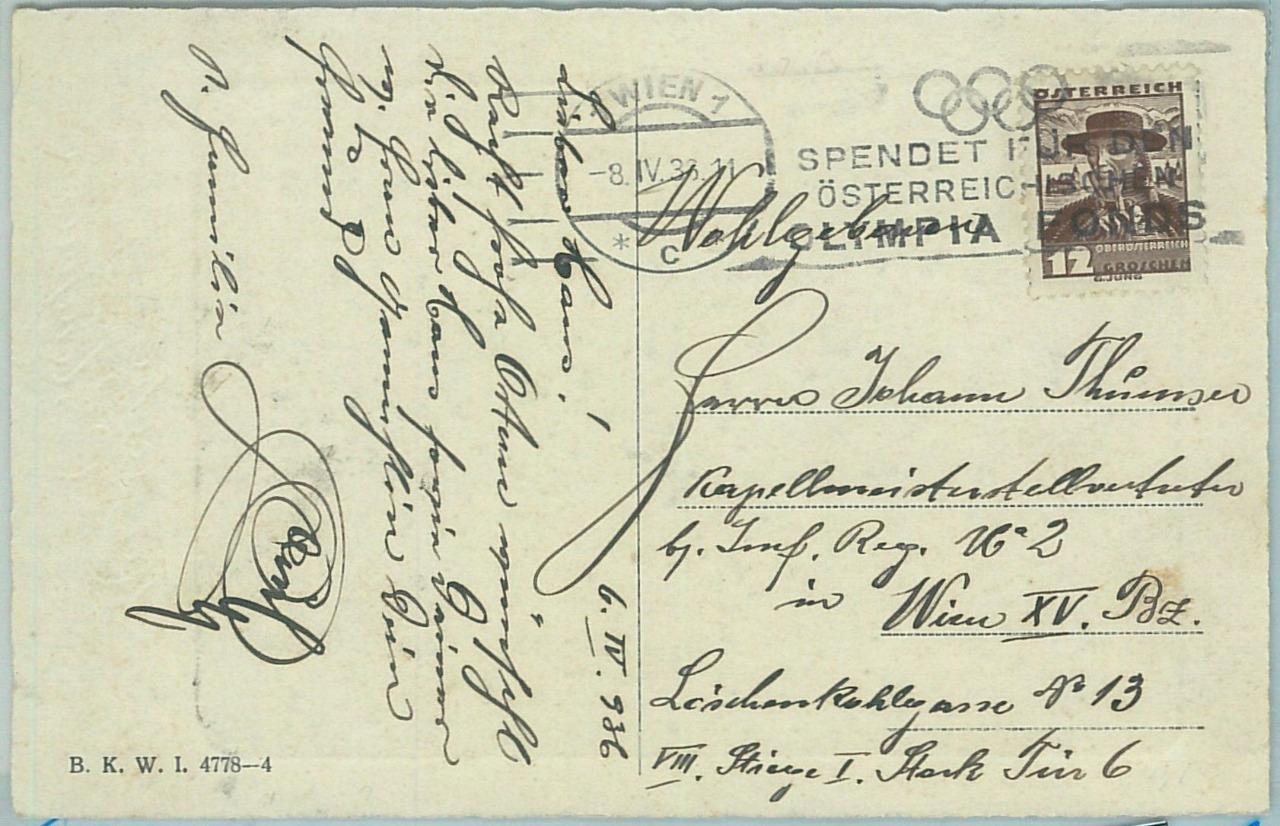 WIEN 1
-8. IV. 36. 11
* C
SPENDET FÜR DEN
ÖSTERREICHISCHEN
OLYMPIA FONDS
ÖSTERREICH
OBERÖSTERREICH
12 GROSCHEN
G. JUNG
Wohlgeboren
Herrn Johann Thumser
Kapellmeisterstellvertreter
b. Inf. Reg. No 2
in Wien XV. Bz.
Löschenkohlgasse No 13
VIII. Stiege I. Stock Tür 6
6. IV. 936
Lieber Hans!
Recht frohe Ostern wünscht
Dir lieber Hans sowie Deiner
Familie Dein
Freund
s. Familie
B. K. W. I. 4778—4